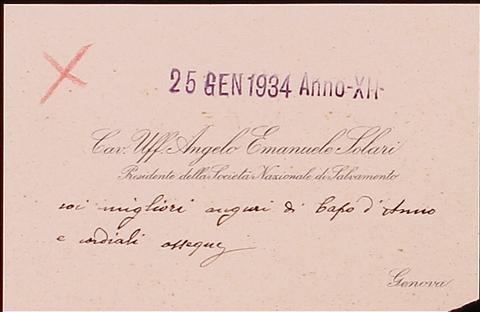 25 GEN 1934 Anno-XII-
Cav. Uff. Angelo Emanuele Solari
Presidente della Società Nazionale di Salvamento
coi migliori auguri di Capo d'Anno
e cordiali ossequi
Genova